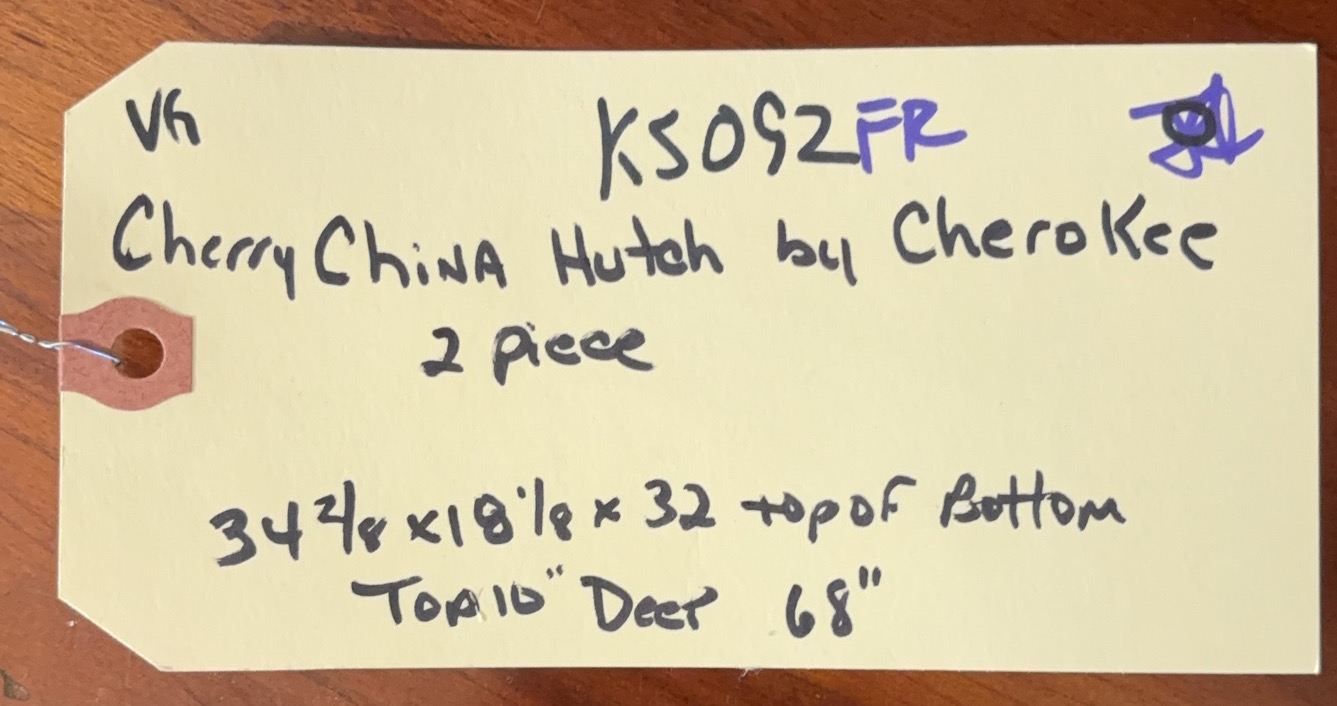 VG KS092FR
Cherry China Hutch by Cherokee
2 piece
34 2/8 x 18 1/8 x 32 top of Bottom
Top 10" Deep 68"